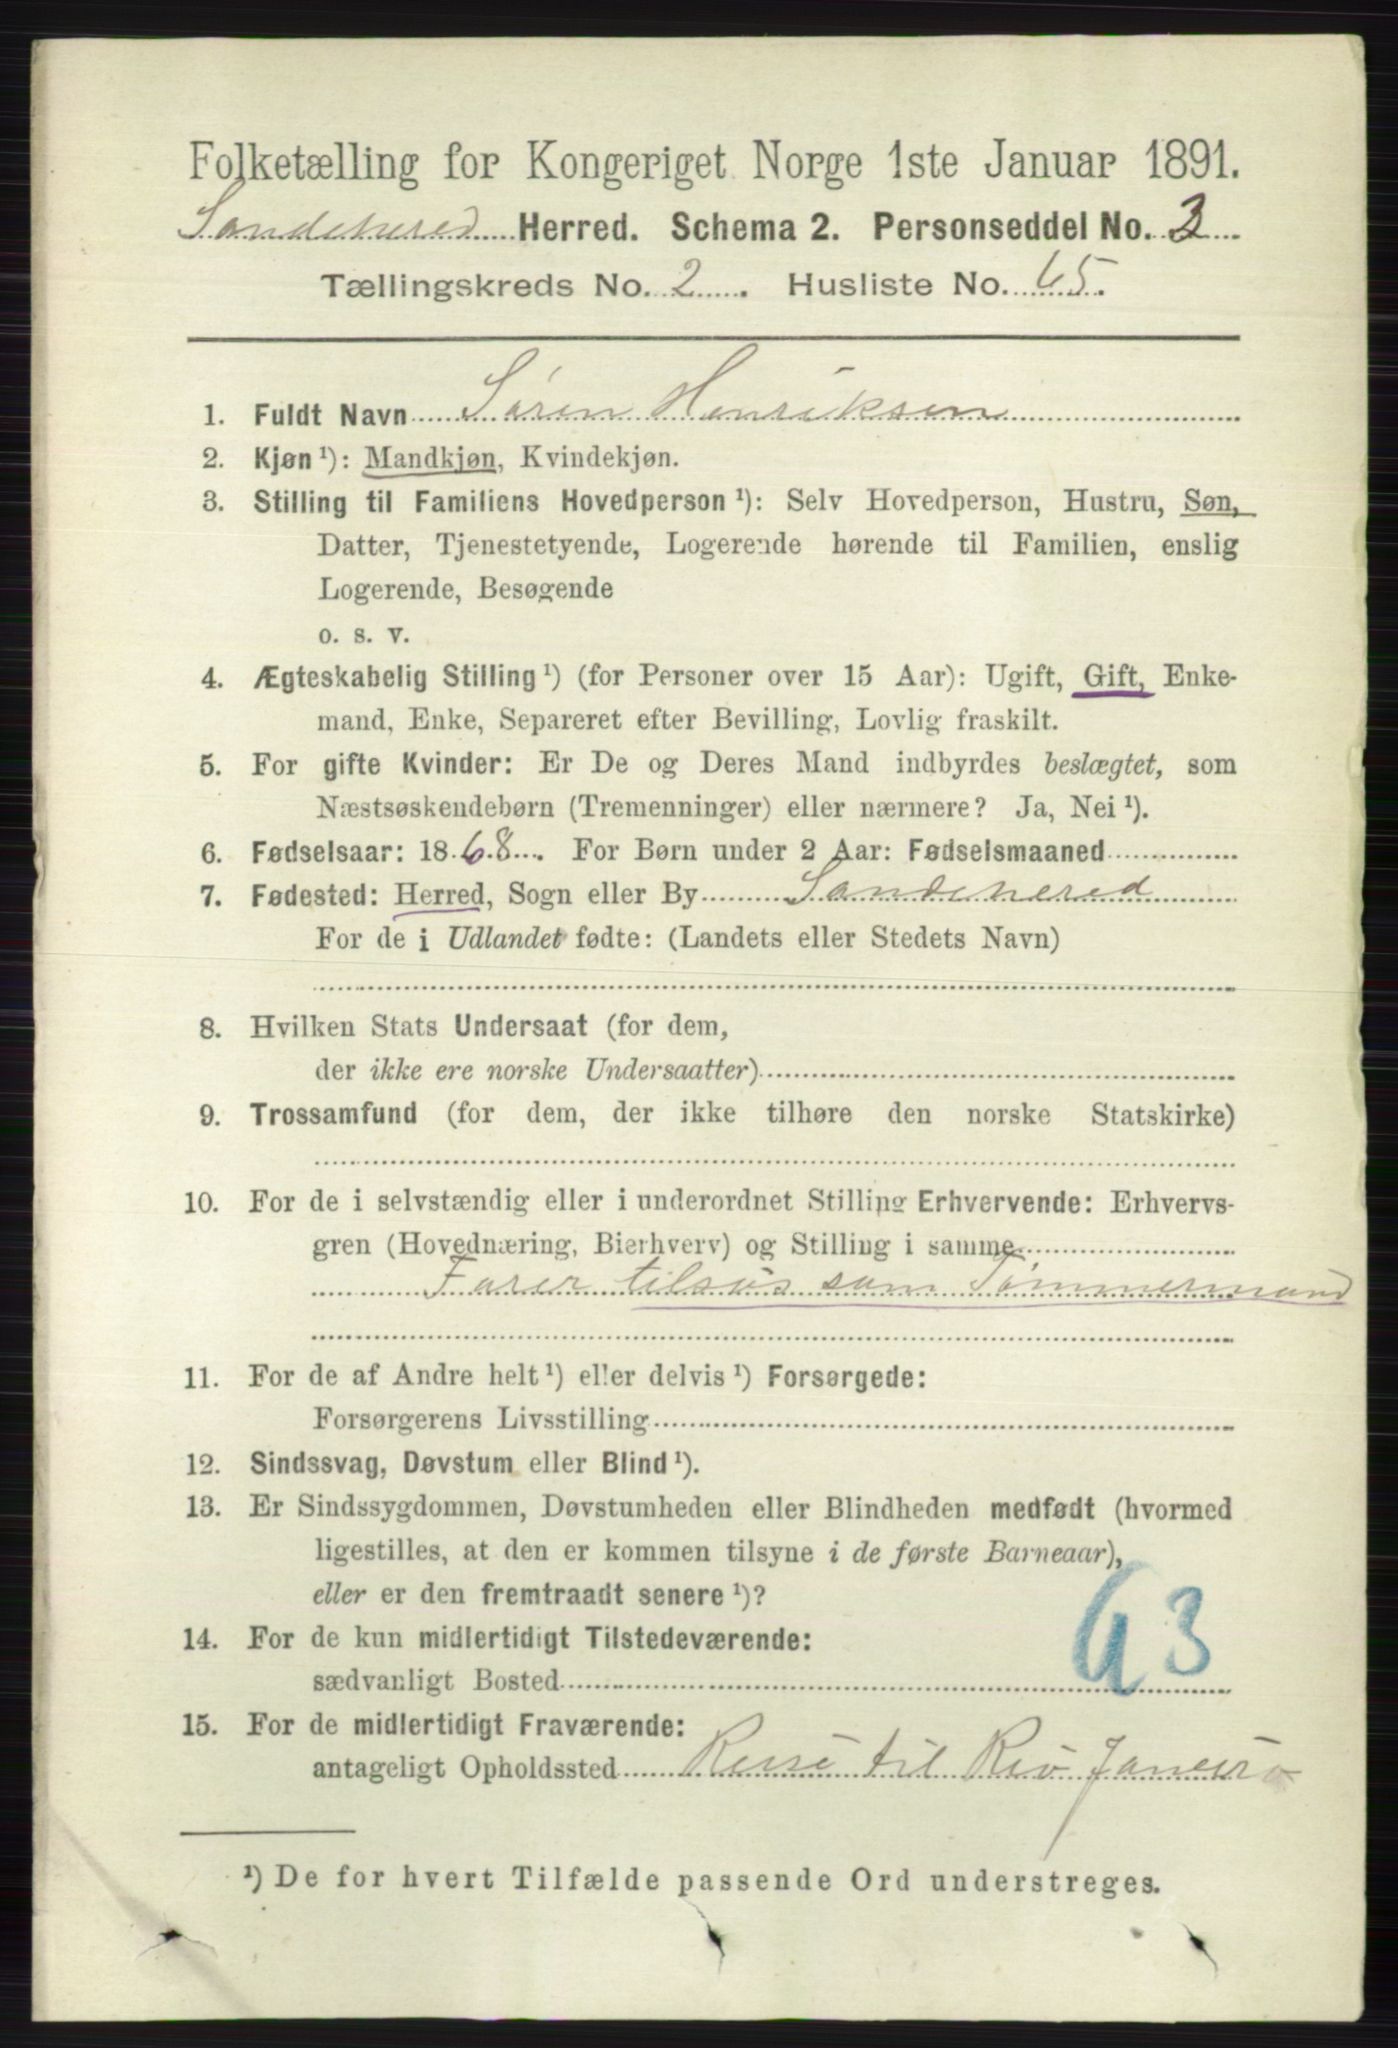 Folketælling for Kongeriget Norge 1ste Januar 1891.
Sandehered Herred. Schema 2. Personseddel No. 3
Tællingskreds No. 2. Husliste No. 65.
1. Fuldt Navn Søren Henriksen
2. Kjøn ¹): Mandkjøn, Kvindekjøn.
3. Stilling til Familiens Hovedperson ¹): Selv Hovedperson, Hustru, Søn,
Datter, Tjenestetyende, Logerende hørende til Familien, enslig
Logerende, Besøgende
o. s. v.
4. Ægteskabelig Stilling ¹) (for Personer over 15 Aar): Ugift, Gift, Enke-
mand, Enke, Separeret efter Bevilling, Lovlig fraskilt.
5. For gifte Kvinder: Er De og Deres Mand indbyrdes beslægtet, som
Næstsøskendebørn (Tremenninger) eller nærmere? Ja, Nei ¹).
6. Fødselsaar: 1868. For Børn under 2 Aar: Fødselsmaaned
7. Fødested: Herred, Sogn eller By Sandehered
For de i Udlandet fødte: (Landets eller Stedets Navn)
8. Hvilken Stats Undersaat (for dem,
der ikke ere norske Undersaatter)
9. Trossamfund (for dem, der ikke tilhøre den norske Statskirke)
10. For de i selvstændig eller i underordnet Stilling Erhvervende: Erhvervs-
gren (Hovednæring, Bierhverv) og Stilling i samme
Farer tilsøs som Tømmermand
11. For de af Andre helt ¹) eller delvis ¹) Forsørgede:
Forsørgerens Livsstilling
12. Sindssvag, Døvstum eller Blind ¹).
13. Er Sindssygdommen, Døvstumheden eller Blindheden medfødt (hvormed
ligestilles, at den er kommen tilsyne i de første Barneaar),
eller er den fremtraadt senere ¹)?
14. For de kun midlertidigt Tilstedeværende:
sædvanligt Bosted
15. For de midlertidigt Fraværende:
antageligt Opholdssted Reise til Rio Janeiro
¹) De for hvert Tilfælde passende Ord understreges.